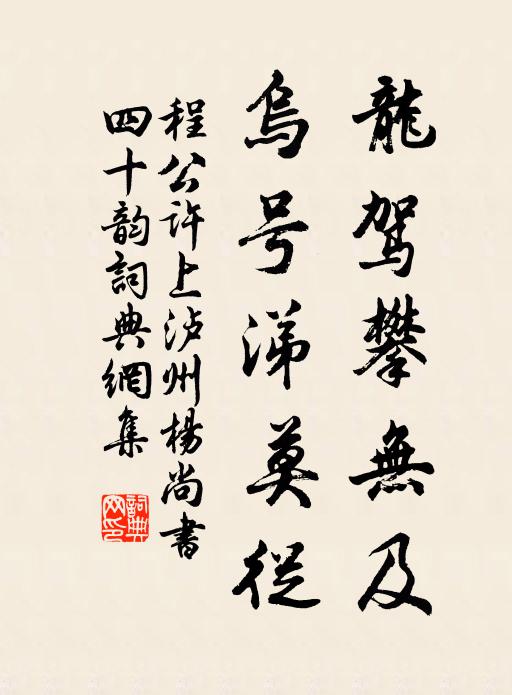 龍駕攀無及
烏号涕莫從
程公许上泸州楊尚書
四十韵詞典網集
詞典
网印